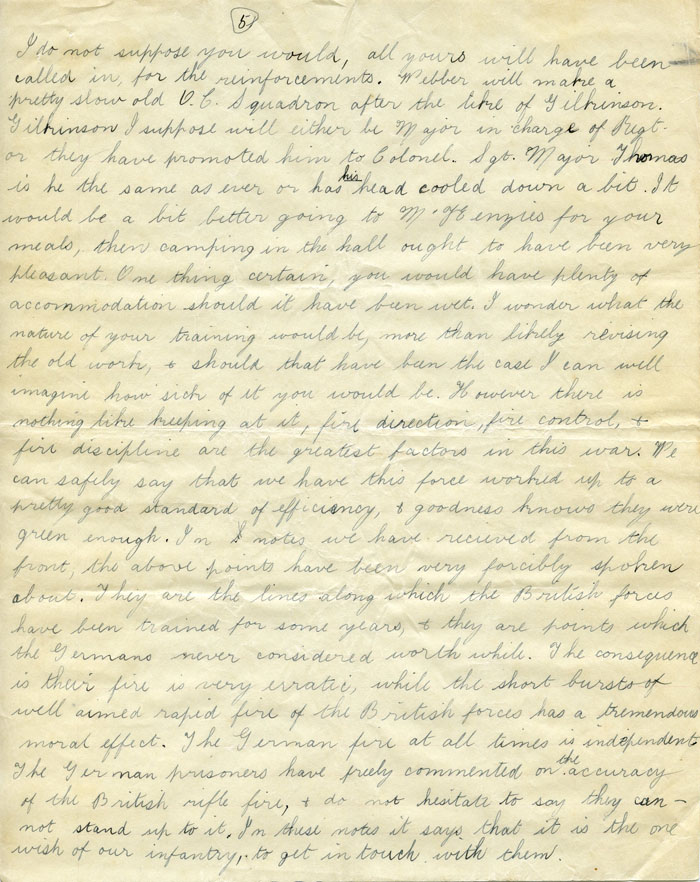 5
I do not suppose you would, all yours will have been
called in, for the reinforcements. Webber will make a
pretty slow old O.C. Squadron after the like of Gilkinson.
Gilkinson I suppose will either be Major in charge of Regt.
or they have promoted him to Colonel. Sgt. Major Thomas
is he the same as ever or has his head cooled down a bit. It
would be a bit better going to McKenzies for your
meals, then camping in the hall ought to have been very
pleasant. One thing certain, you would have plenty of
accommodation should it have been wet. I wonder what the
nature of your training would be, more than likely revising
the old work, & should that have been the case I can well
imagine how sick of it you would be. However there is
nothing like keeping at it, fire direction, fire control, &
fire discipline are the greatest factors in this war. We
can safely say that we have this force worked up to a
pretty good standard of efficiency, & goodness knows they were
green enough. In notes we have recieved from the
front, the above points have been very forcibly spoken
about. They are the lines along which the British forces
have been trained for some years, & they are points which
the Germans never considered worth while. The consequence
is their fire is very erratic, while the short bursts of
well aimed raped fire of the British forces has a tremendous
moral effect. The German fire at all times is independent
The German prisoners have freely commented on the accuracy
of the British rifle fire, & do not hesitate to say they can-
not stand up to it. In these notes it says that it is the one
wish of our infantry, to get in touch with them.